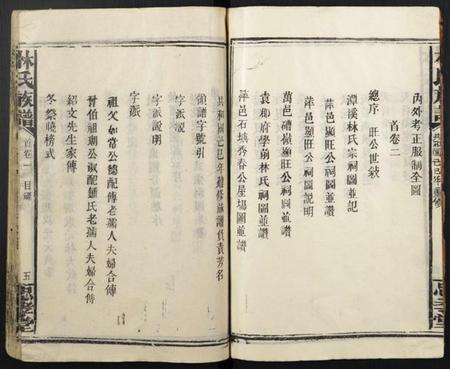 內外考正服制全圖
首卷二
總序 旺公世敍
潭溪林氏宗祠圖並記
萍邑顯旺公祠圖並讚
萍邑顯旺公祠圖說明
萬邑禮嶺顯旺公祠圖並讚
袁和府學前林氏祠圖並讚
萍邑石塘秀春公屋場圖並讚
共和國己巳年續修族譜負責芳名
領譜字號引
字派說
字派說明
字派
祖父如常公德配傳老孺人夫婦合傳
晉伯祖湖公淑配鍾氏老孺人夫婦合傳
紹文先生家傳
冬祭曉榜式
林氏族譜
首卷一
目錄
五
忠孝堂